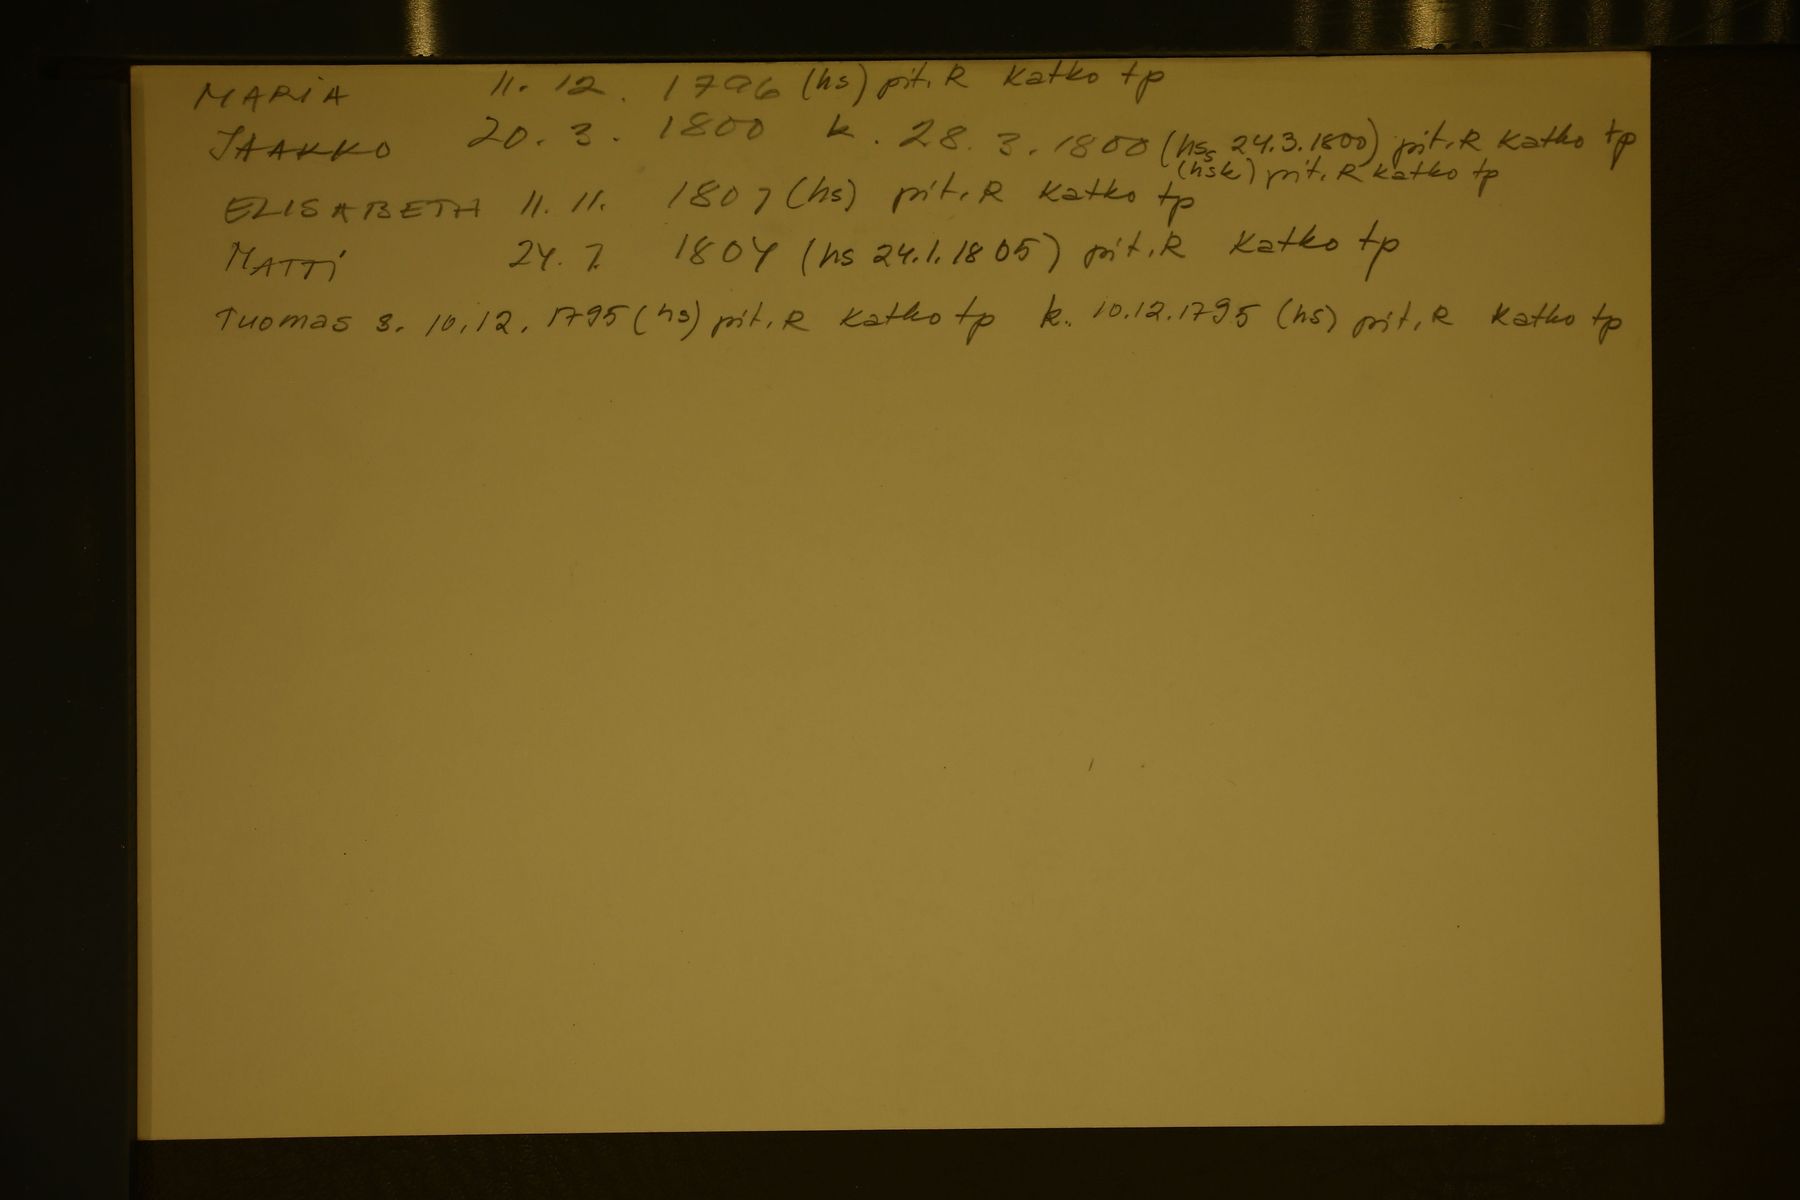 MARIA 11. 12. 1796 (hs) pit. R Katko tp
JAAKKO 20. 3. 1800 k. 28. 3. 1800 (hss 24.3.1800) pit. R Katko tp
(hsk) pit. R Katko tp
ELISABETH 11. 11. 1807 (hs) pit. R Katko tp
MATTI 24. 7. 1804 (hs 24.1.1805) pit. R Katko tp
Tuomas s. 10.12. 1795 (hs) pit. R Katko tp k. 10.12.1795 (hs) pit. R Katko tp